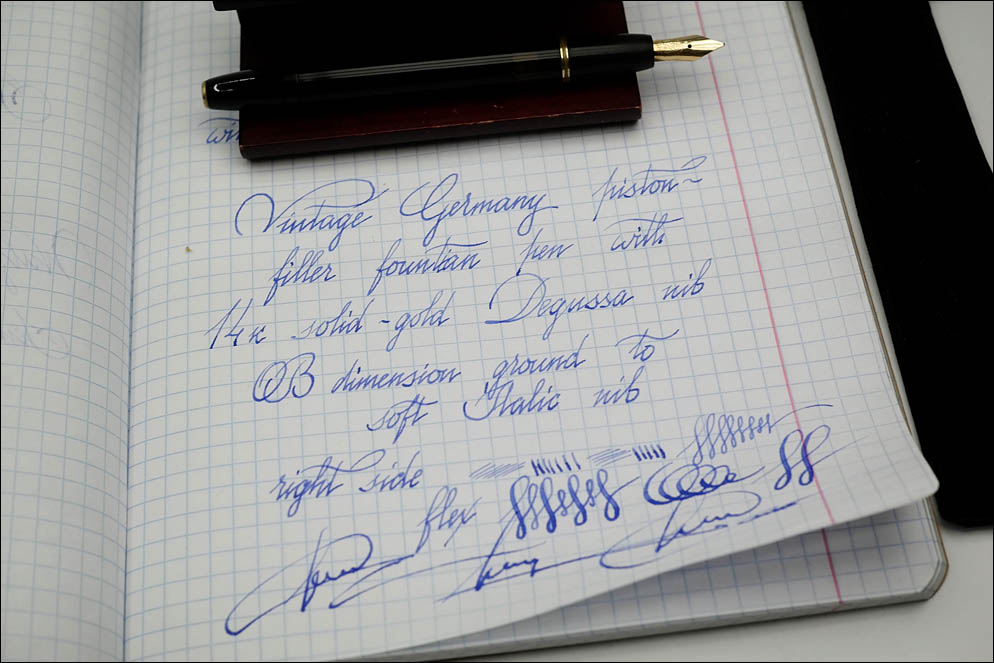 Vintage Germany piston-
filler fountian pen with
14к solid-gold Degussa nib
OB dimension ground to
soft Italic nib
right side
flex